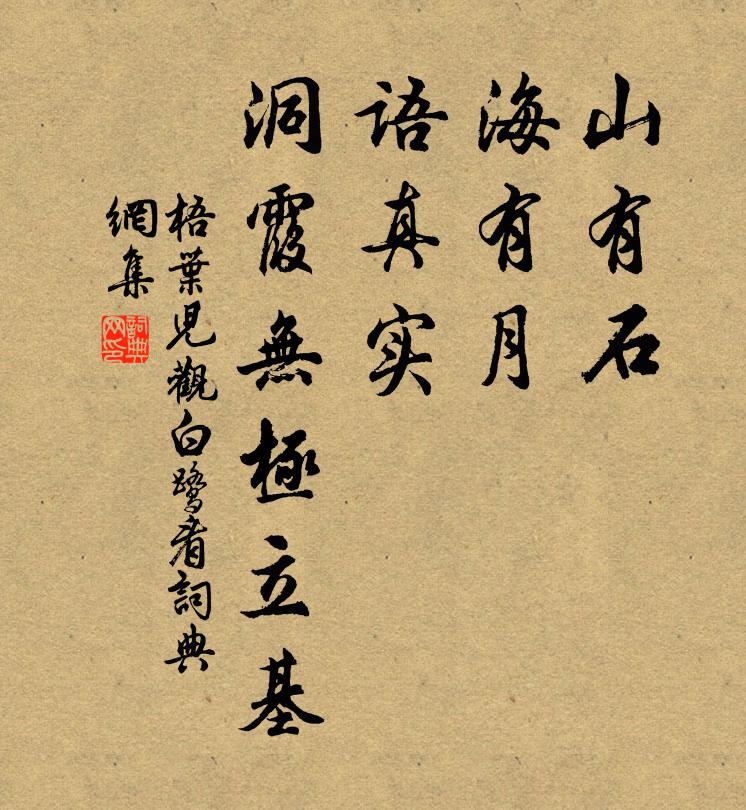 山有石
海有月
語真实
洞霞無極立基
梧葉児觀白鹭者詞典
網集
詞典
网印